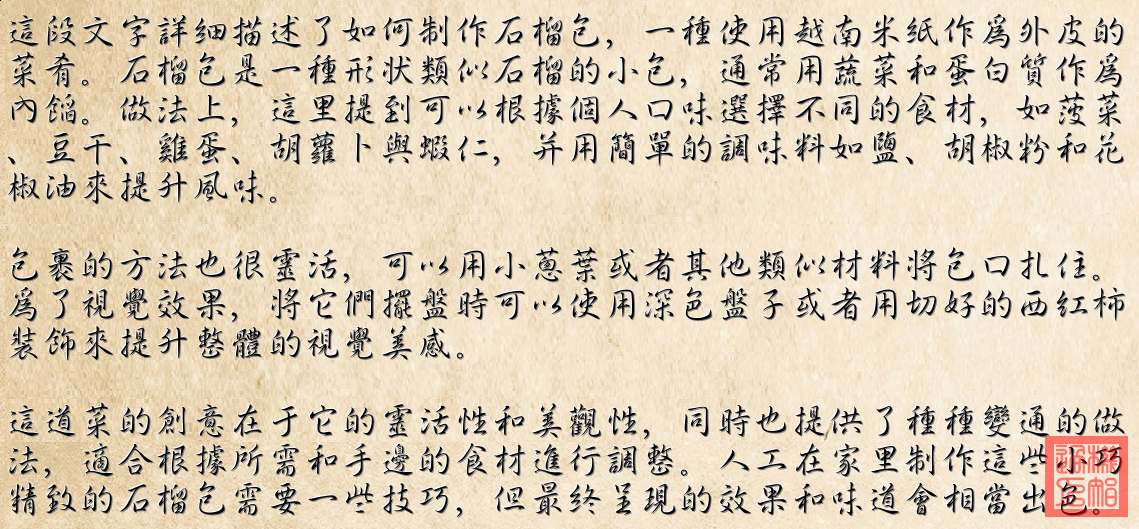 這段文字詳細描述了如何制作石榴包，一種使用越南米紙作爲外皮的
菜肴。石榴包是一種形狀類似石榴的小包，通常用蔬菜和蛋白質作爲
內餡。做法上，這里提到可以根據個人口味選擇不同的食材，如菠菜
、豆干、雞蛋、胡蘿卜與蝦仁，并用簡單的調味料如鹽、胡椒粉和花
椒油來提升風味。
包裹的方法也很靈活，可以用小蔥葉或者其他類似材料將包口扎住。
爲了視覺效果，將它們擺盤時可以使用深色盤子或者用切好的西紅柿
裝飾來提升整體的視覺美感。
這道菜的創意在于它的靈活性和美觀性，同時也提供了種種變通的做
法，適合根據所需和手邊的食材進行調整。人工在家里制作這些小巧
精致的石榴包需要一些技巧，但最終呈現的效果和味道會相當出色。